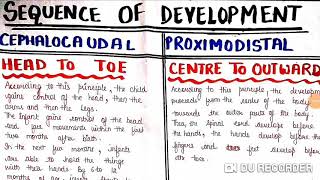 SEQUENCE OF DEVELOPMENT
CEPHALOCAUDAL
HEAD TO TOE
According to this principle, the child
gains control of the head, then the
arms and then the legs.
The Infant gains control of the head
and face movements within the first
two months after birth.
In the next few months, infants
are able to hold the things
with their hands. By 6 to 12
PROXIMODISTAL
CENTRE TO OUTWARD
According to this principle, the developm
proceeds from the center of the body
towards the outer parts of the body.
Thus, the spinal cord develops before
the hands, the hands develop before the
fingers and feet develop before
the toes.
DU RECORDER